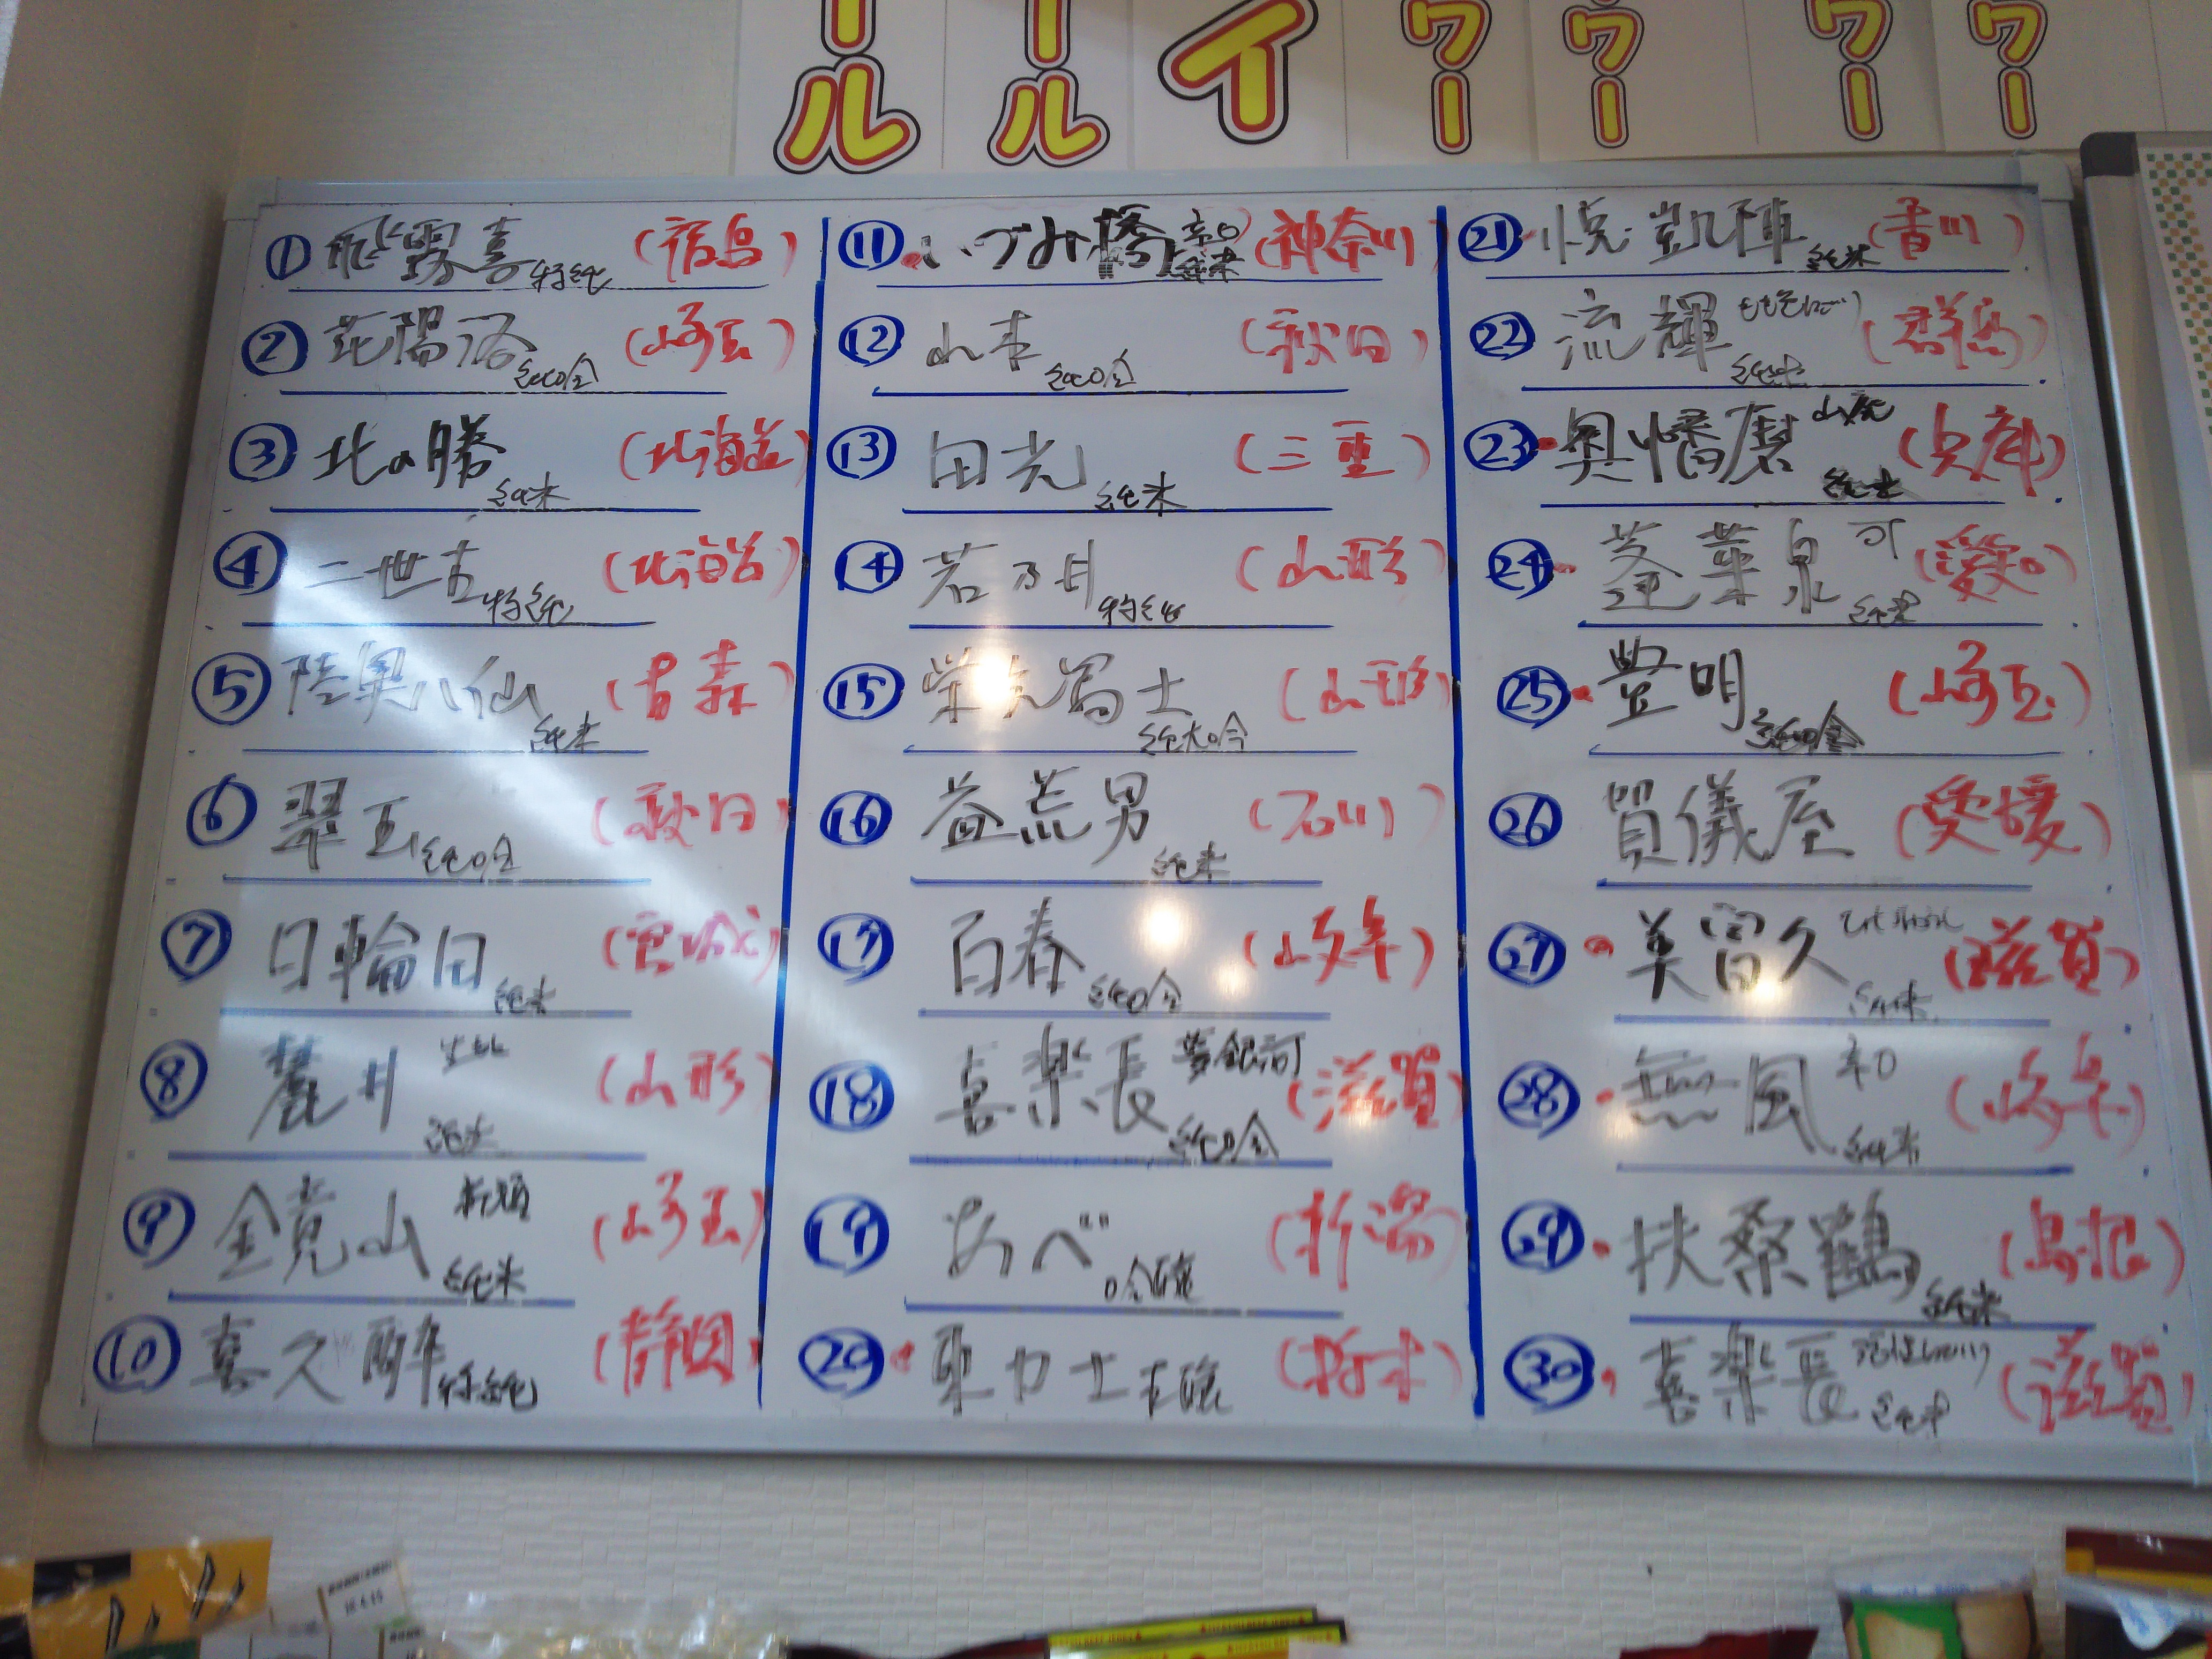 ール
ール
イ
ワー
ワー
ワー
ワー
① 飛露喜 特純 (福島)
② 花陽浴 純吟 (埼玉)
③ 北の勝 純米 (北海道)
④ 二世古 特純 (北海道)
⑤ 陸奥八仙 純米 (青森)
⑥ 翠玉 純吟 (秋田)
⑦ 日輪田 純米 (宮城)
⑧ 麓井 生酛 純米 (山形)
⑨ 金鏡山 純米 (埼玉)
⑩ 喜久酔 特純 (静岡)
⑪ いづみ橋 辛口 純米 (神奈川)
⑫ 山本 純吟 (秋田)
⑬ 田光 純米 (三重)
⑭ 若乃井 特純 (山形)
⑮ 栄光冨士 純大吟 (山形)
⑯ 益荒男 純米 (石川)
⑰ 百春 純吟 (岐阜)
⑱ 喜楽長 夢銀河 純吟 (滋賀)
⑲ あべ 吟醸 (新潟)
⑳ 東力士 本醸 (栃木)
㉑ 悦凱陣 純米 (香川)
㉒ 流輝 純米 (群馬)
㉓ 奥播磨 山廃 純米 (兵庫)
㉔ 蓬莱泉 可 純米 (愛知)
㉕ 豊明 純吟 (埼玉)
㉖ 賀儀屋 (愛媛)
㉗ 美冨久 純米 (滋賀)
㉘ 無風 辛口 純米 (岐阜)
㉙ 扶桑鶴 純米 (島根)
㉚ 喜楽長 純米 (滋賀)